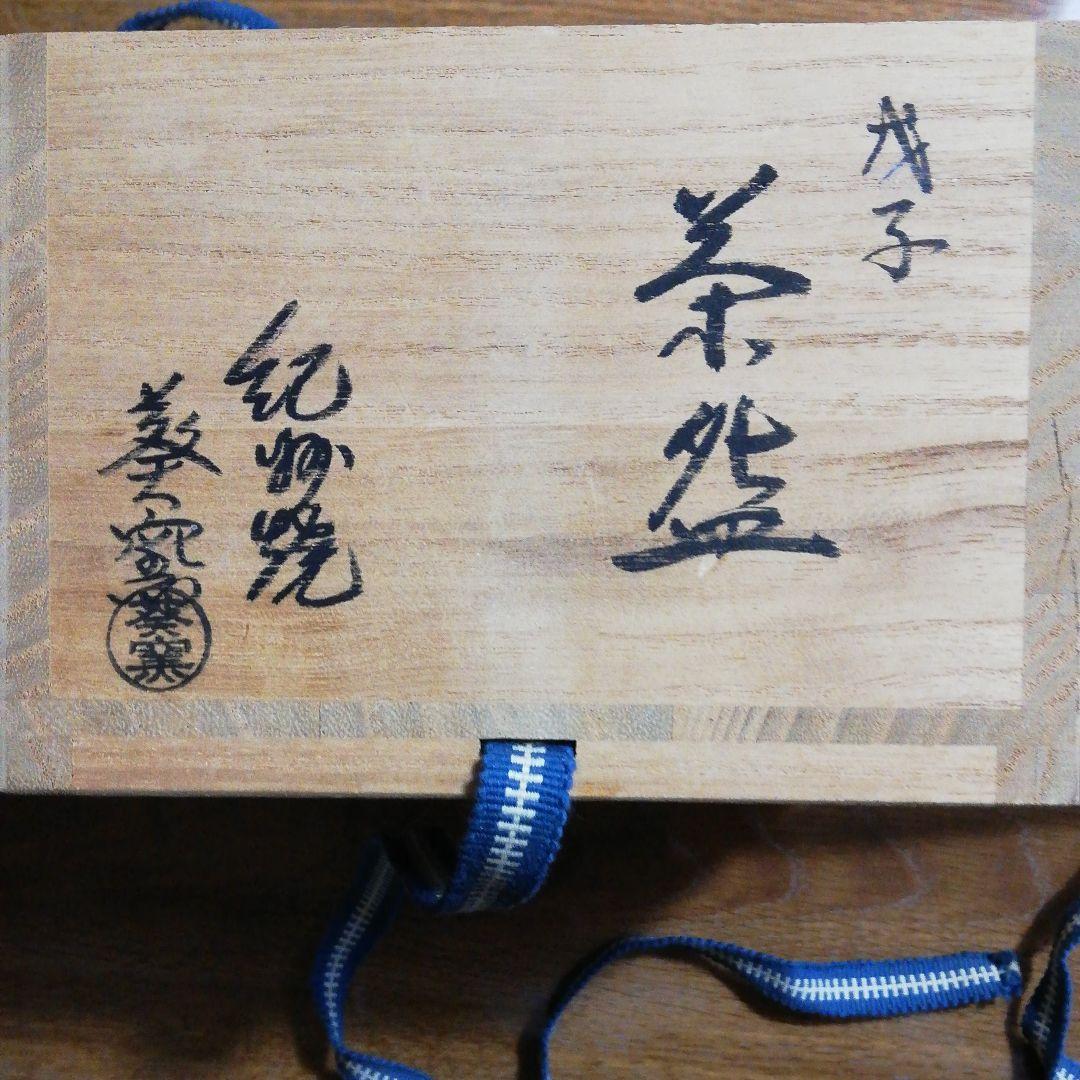 戊子
茶盌
紀州焼
葵窯